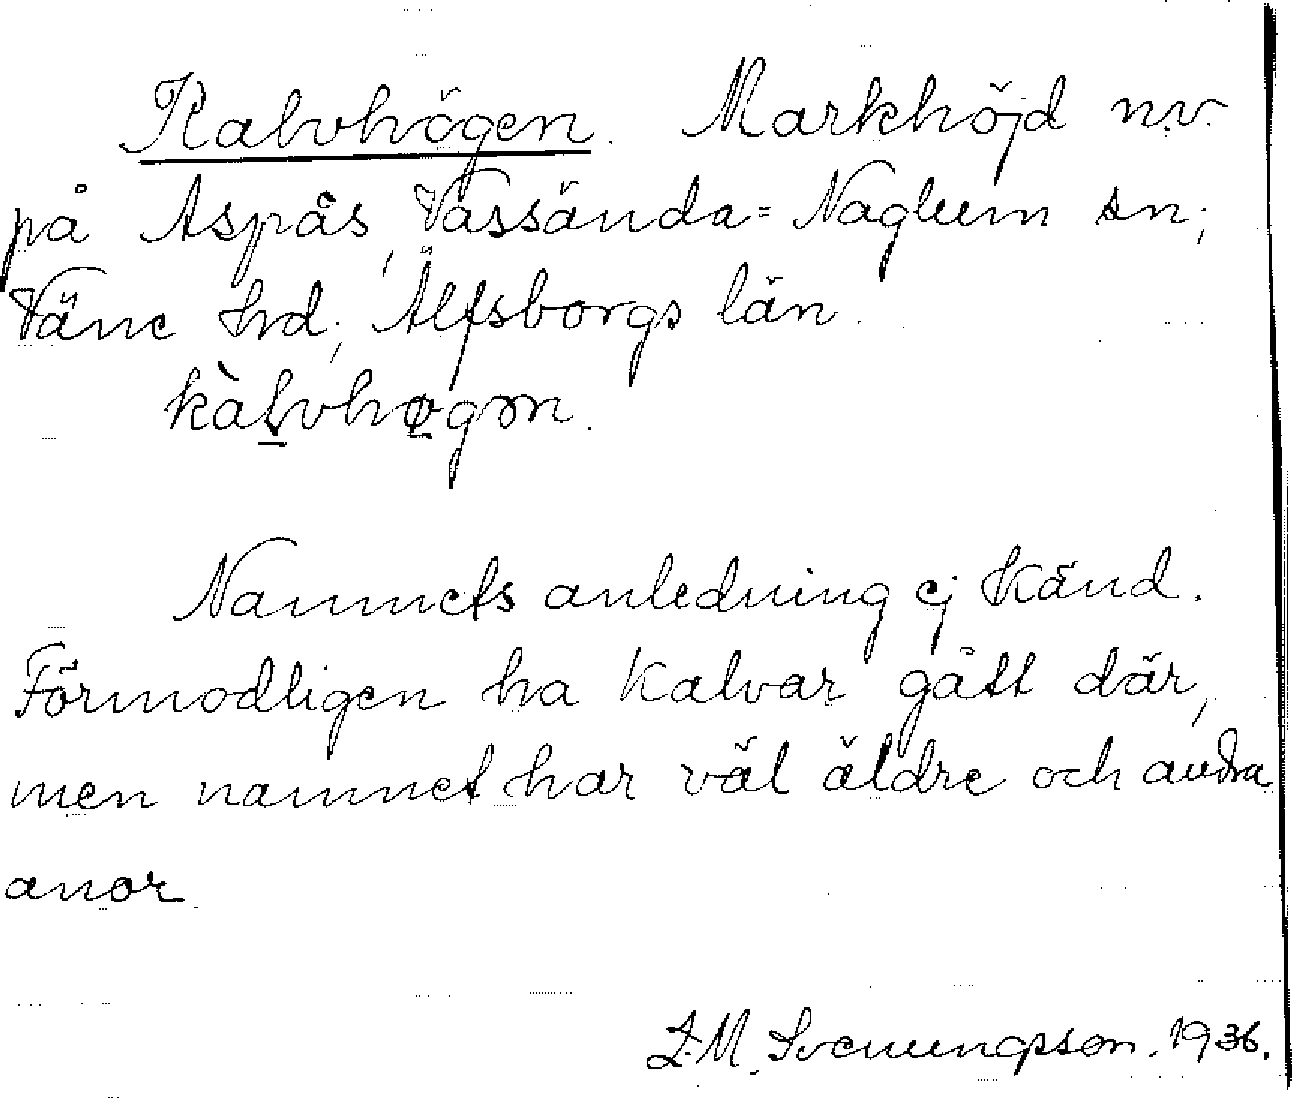 Kalvhögen. Markhöjd n.v.
på Aspås, Vassända=Naglum sn;
Väne hrd; Älfsborgs län.
kàlvhøgən.
Namnets anledning ej känd.
Förmodligen ha kalvar gått där,
men namnet har väl äldre och andra
anor.
Svenungsson. 1936.